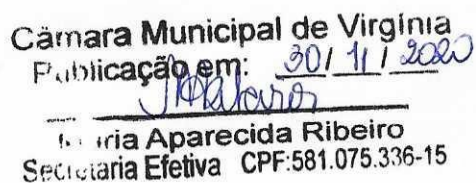 Câmara Municipal de Virgínia
Publicação em: 30/11/2020
Maria Aparecida Ribeiro
Secretaria Efetiva CPF:581.075.336-15